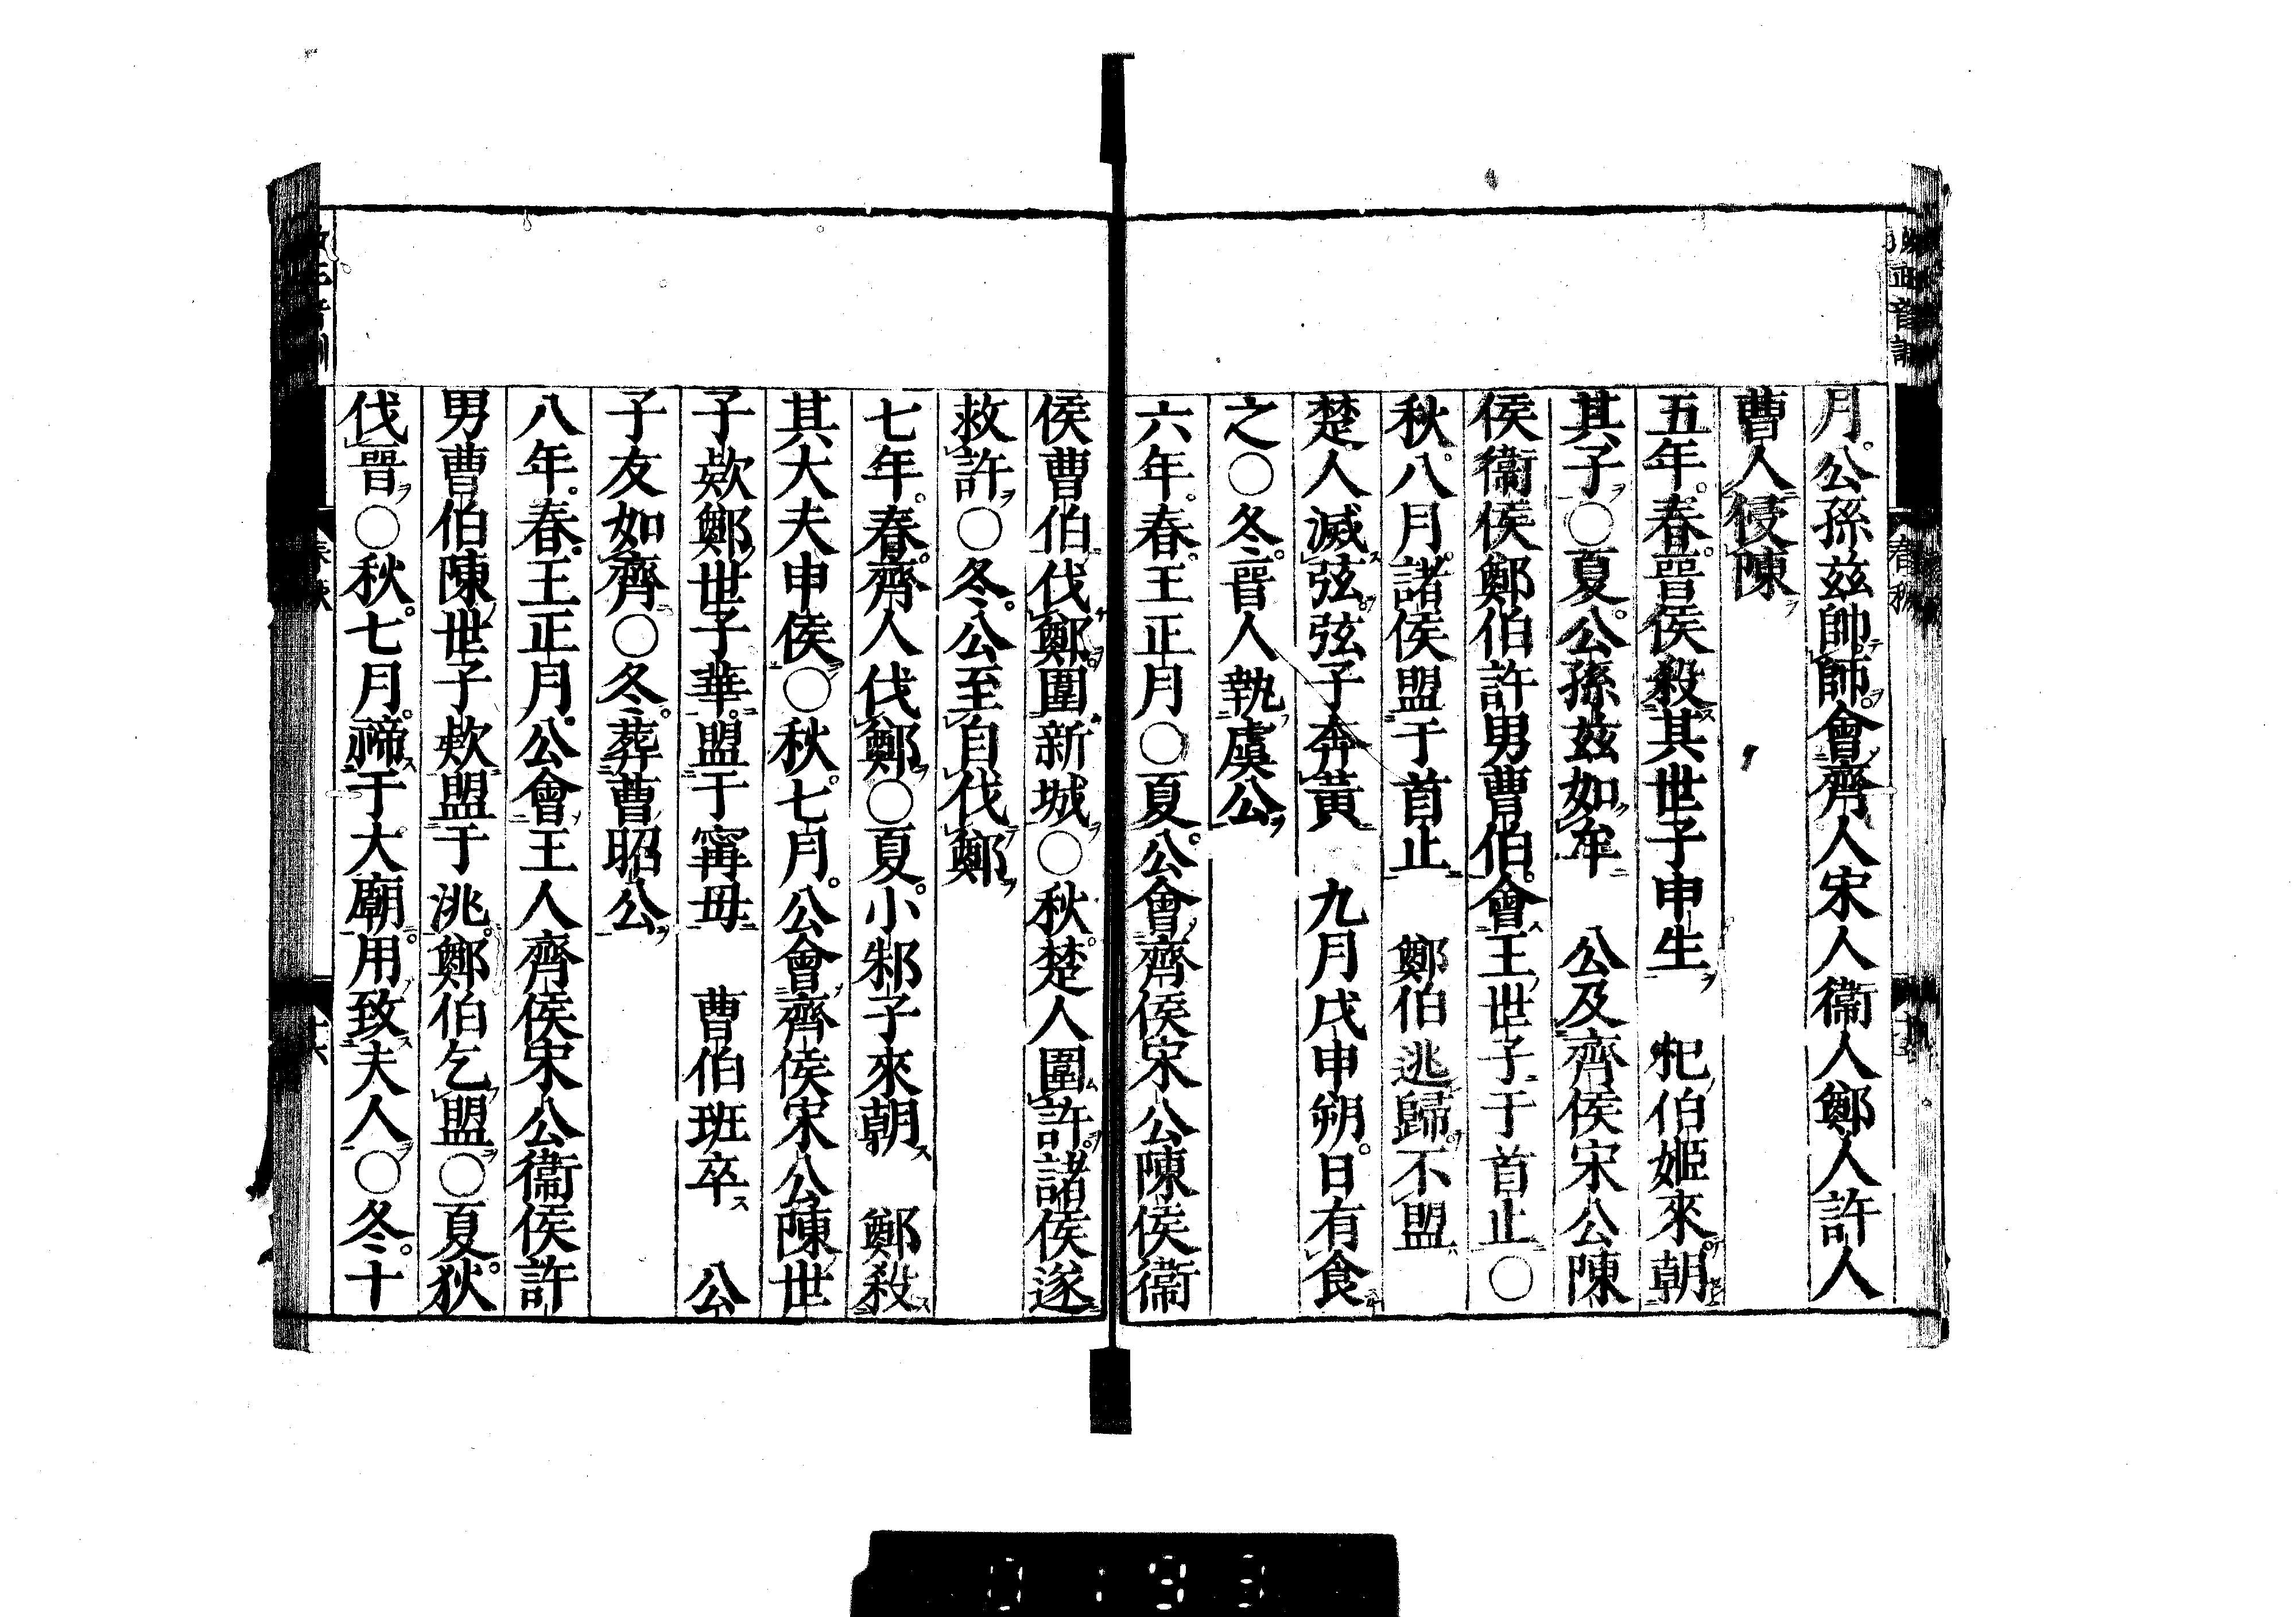 月公孫茲帥師會齊人宋人衞人鄭人許人
曹人侵陳
五年春晉侯殺其世子申生　杞伯姬來朝
其子○夏公孫茲如牟　公及齊侯宋公陳
侯衞侯鄭伯許男曹伯會王世子于首止○
秋八月諸侯盟于首止　鄭伯逃歸不盟
楚人滅弦弦子奔黃　九月戊申朔日有食
之○冬晉人執虞公
六年春王正月○夏公會齊侯宋公陳侯衞
侯曹伯伐鄭圍新城○秋楚人圍許諸侯遂
救許○冬公至自伐鄭
七年春齊人伐鄭○夏小邾子來朝　鄭殺
其大夫申侯○秋七月公會齊侯宋公陳世
子款鄭世子華盟于甯毋　曹伯班卒　公
子友如齊○冬葬曹昭公
八年春王正月公會王人齊侯宋公衞侯許
男曹伯陳世子款盟于洮鄭伯乞盟○夏狄
伐晉○秋七月禘于大廟用致夫人○冬十
春秋